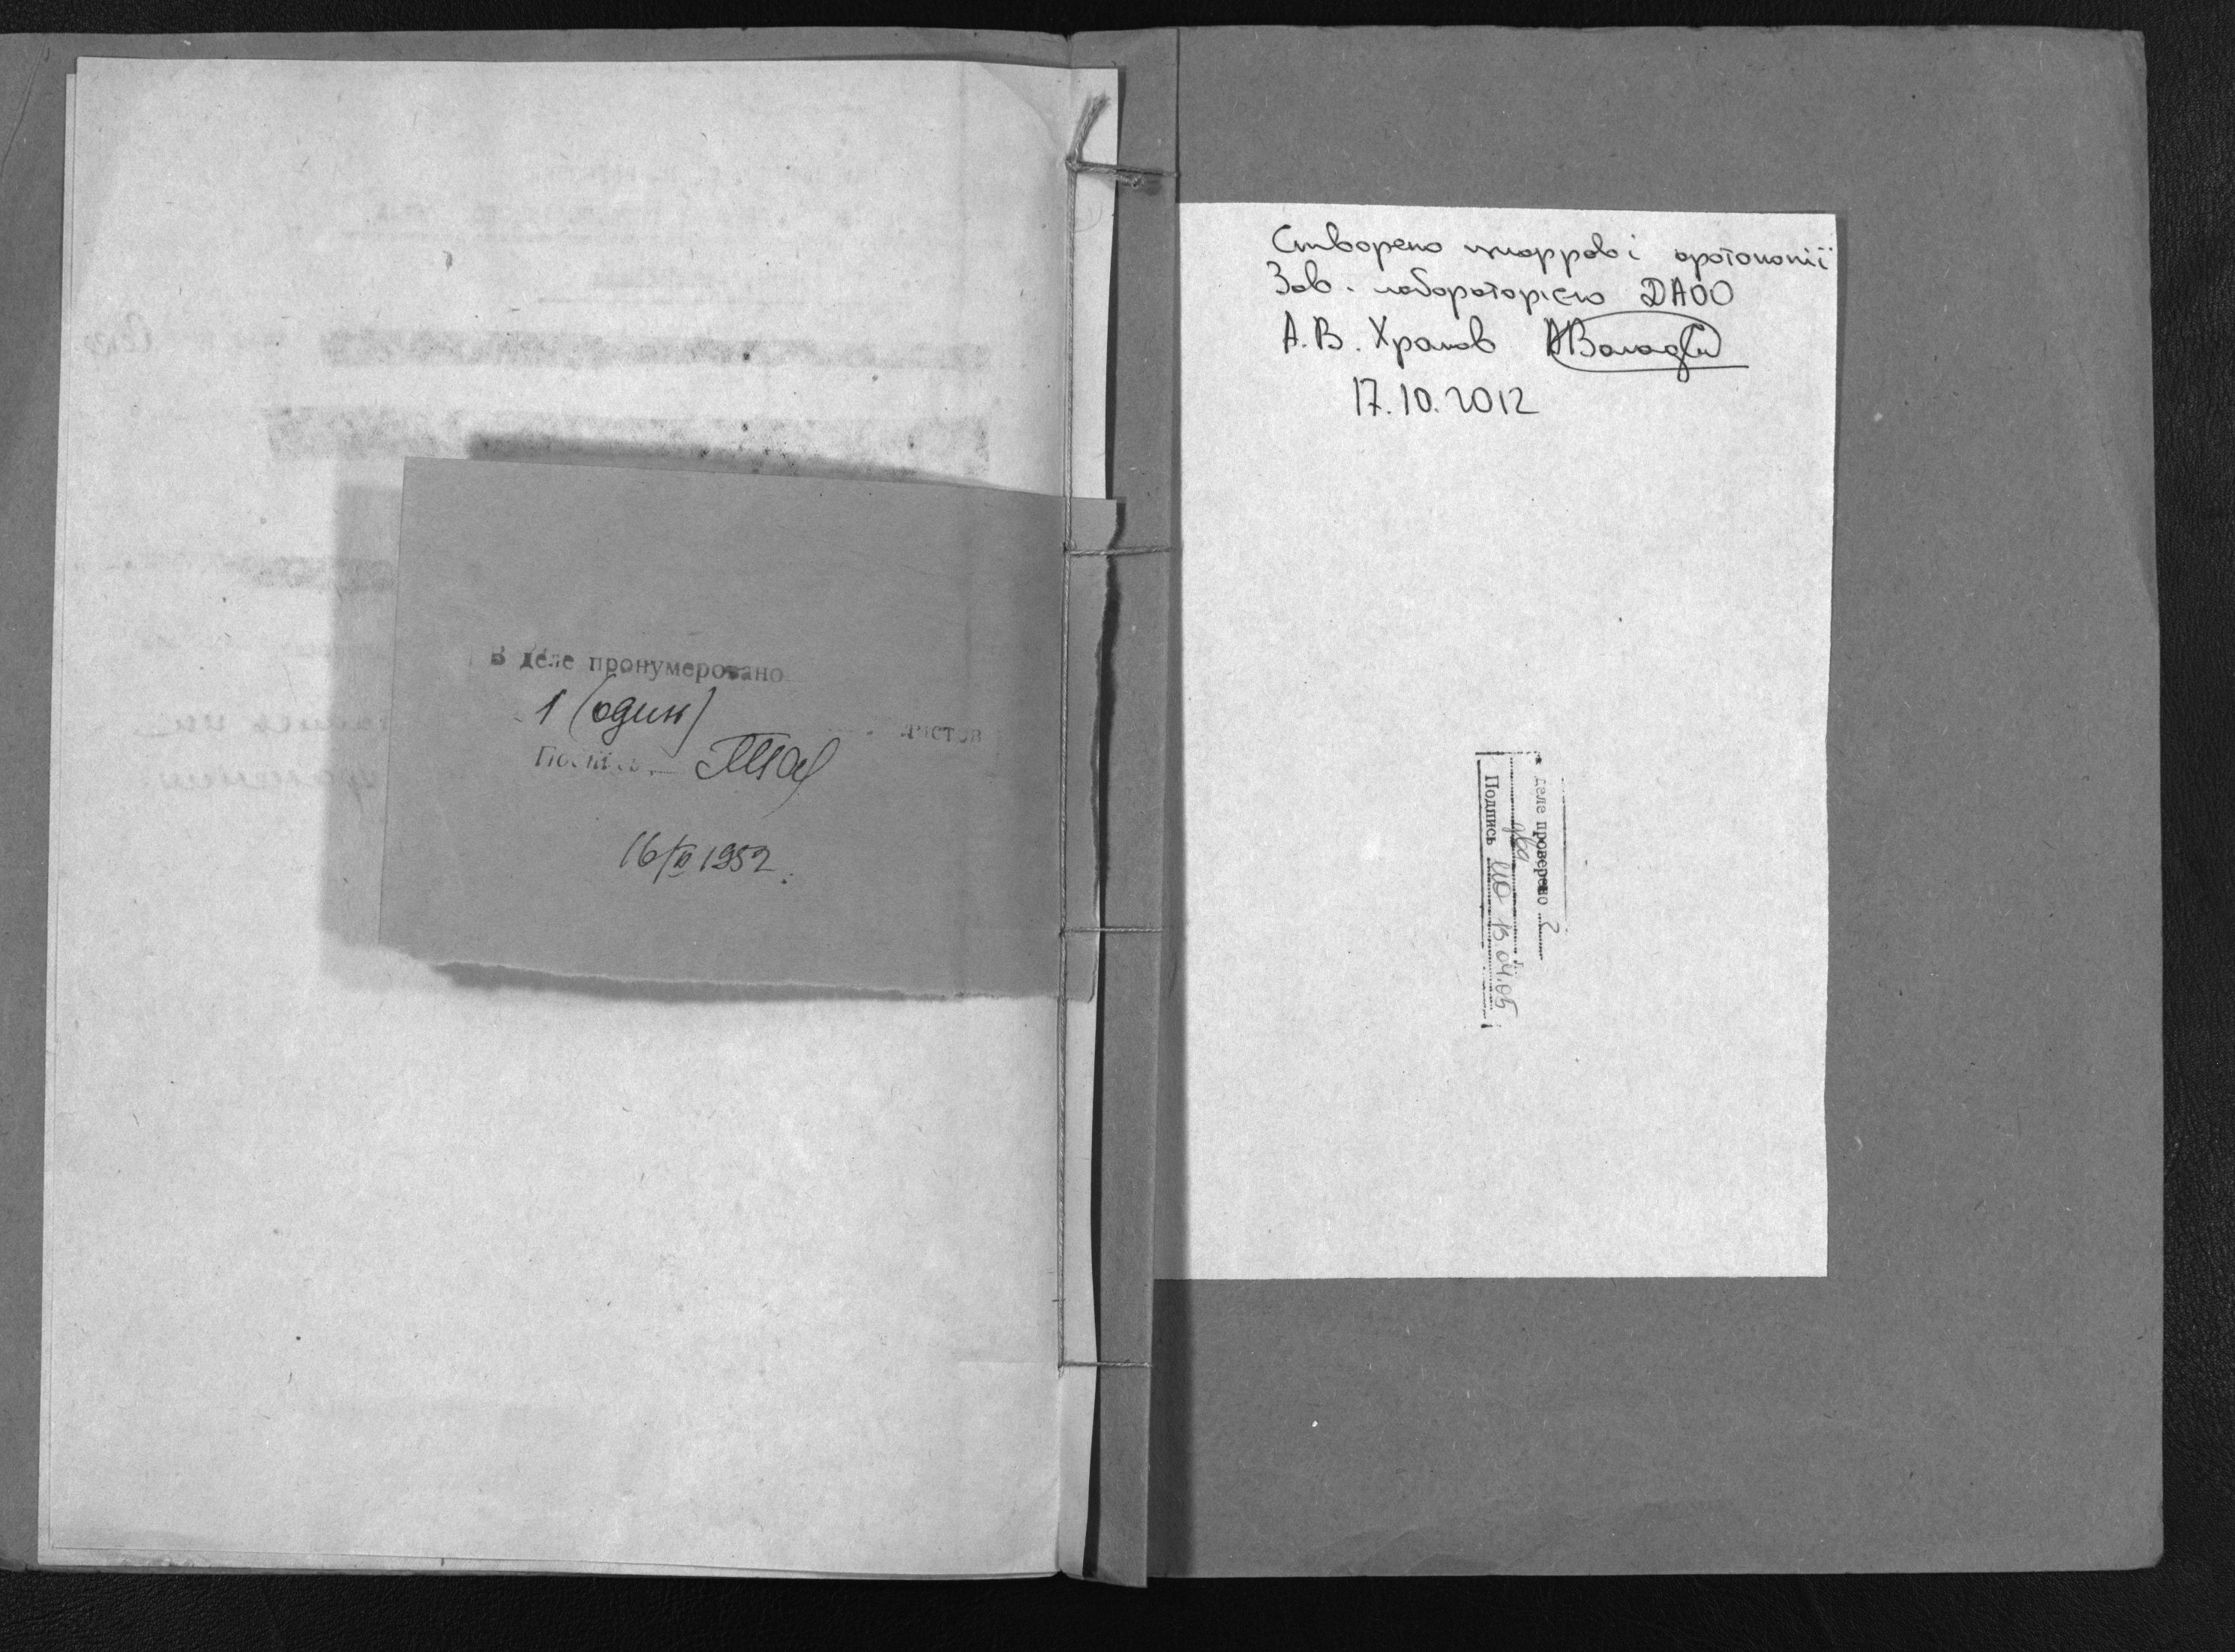 В деле пронумеровано
1 (один)
листов
Подпись
16/VI 1952.
Створено цифрові фотокопії
Зав. лабораторією ДАОО
А.В. Храмов
17.10.2012
деле проверено 2
два
Подпись 13 04.05